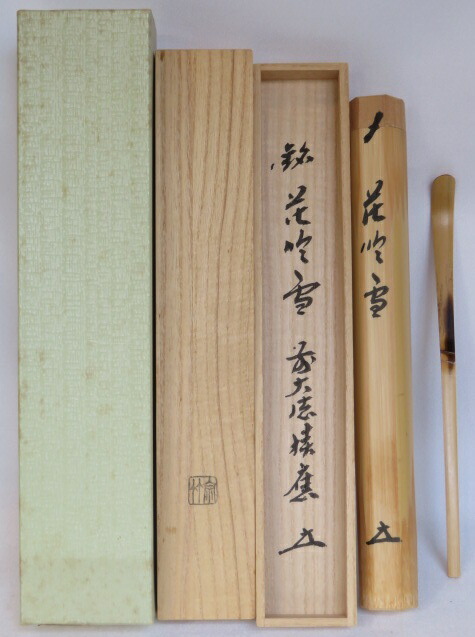 銘 花吹雪 前大徳積應
花吹雪